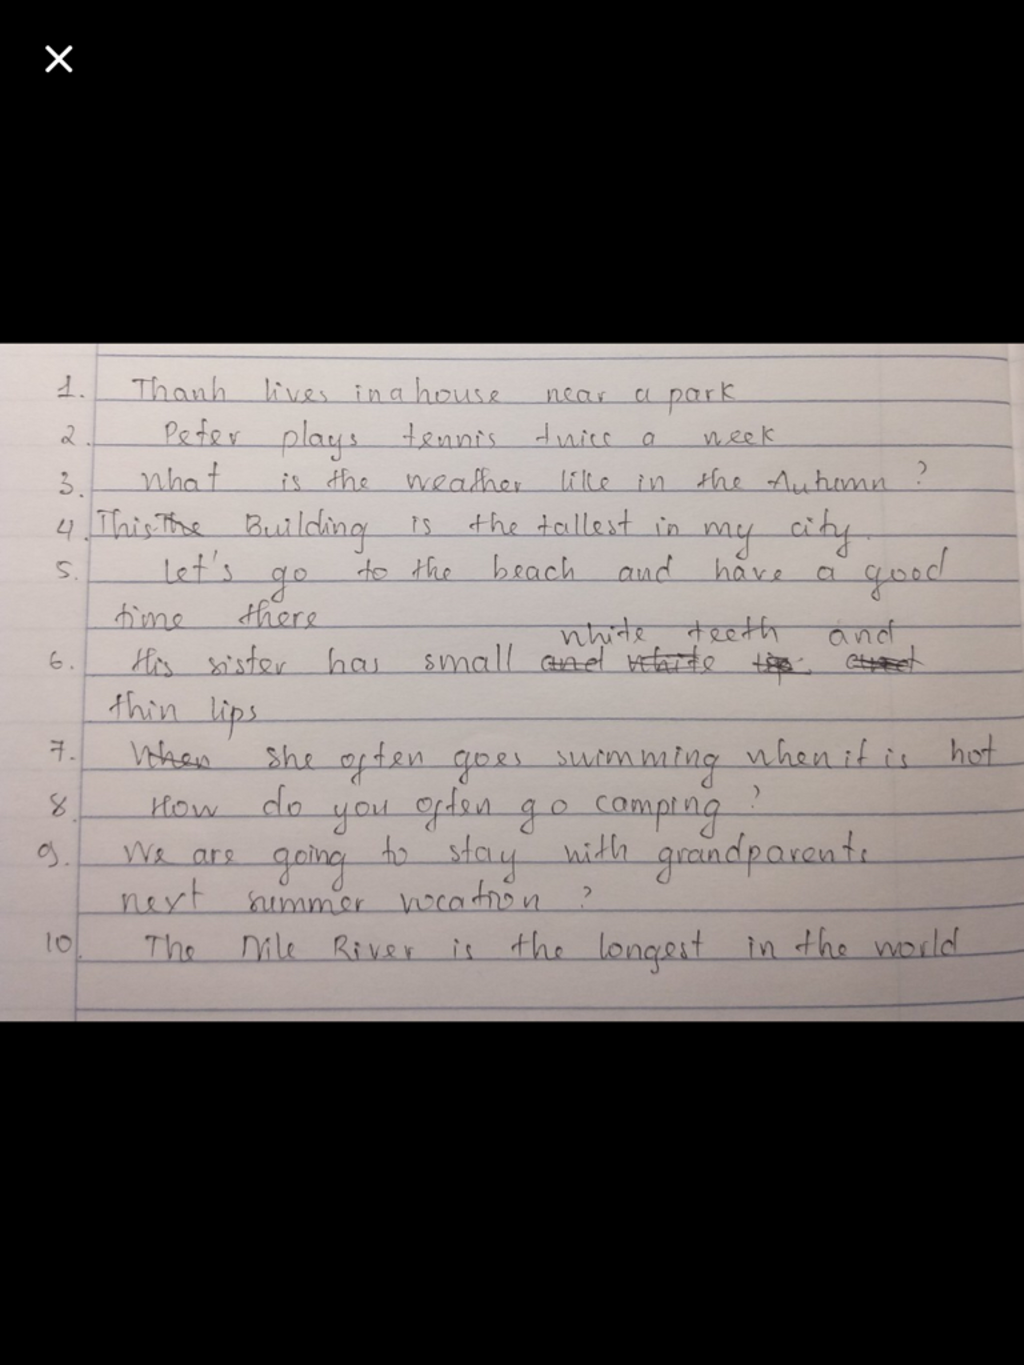 1. Thanh lives in a house near a park
2. Peter plays tennis twice a week
3. What is the weather like in the Autumn ?
4. This The Building is the tallest in my city.
5. Let's go to the beach and have a good
time there
white teeth and
6. His sister has small and white lip and
thin lips
7. When she often goes swimming when it is hot
8. How do you often go camping ?
9. We are going to stay with grandparents
next summer vocation ?
10. The Nile River is the longest in the world